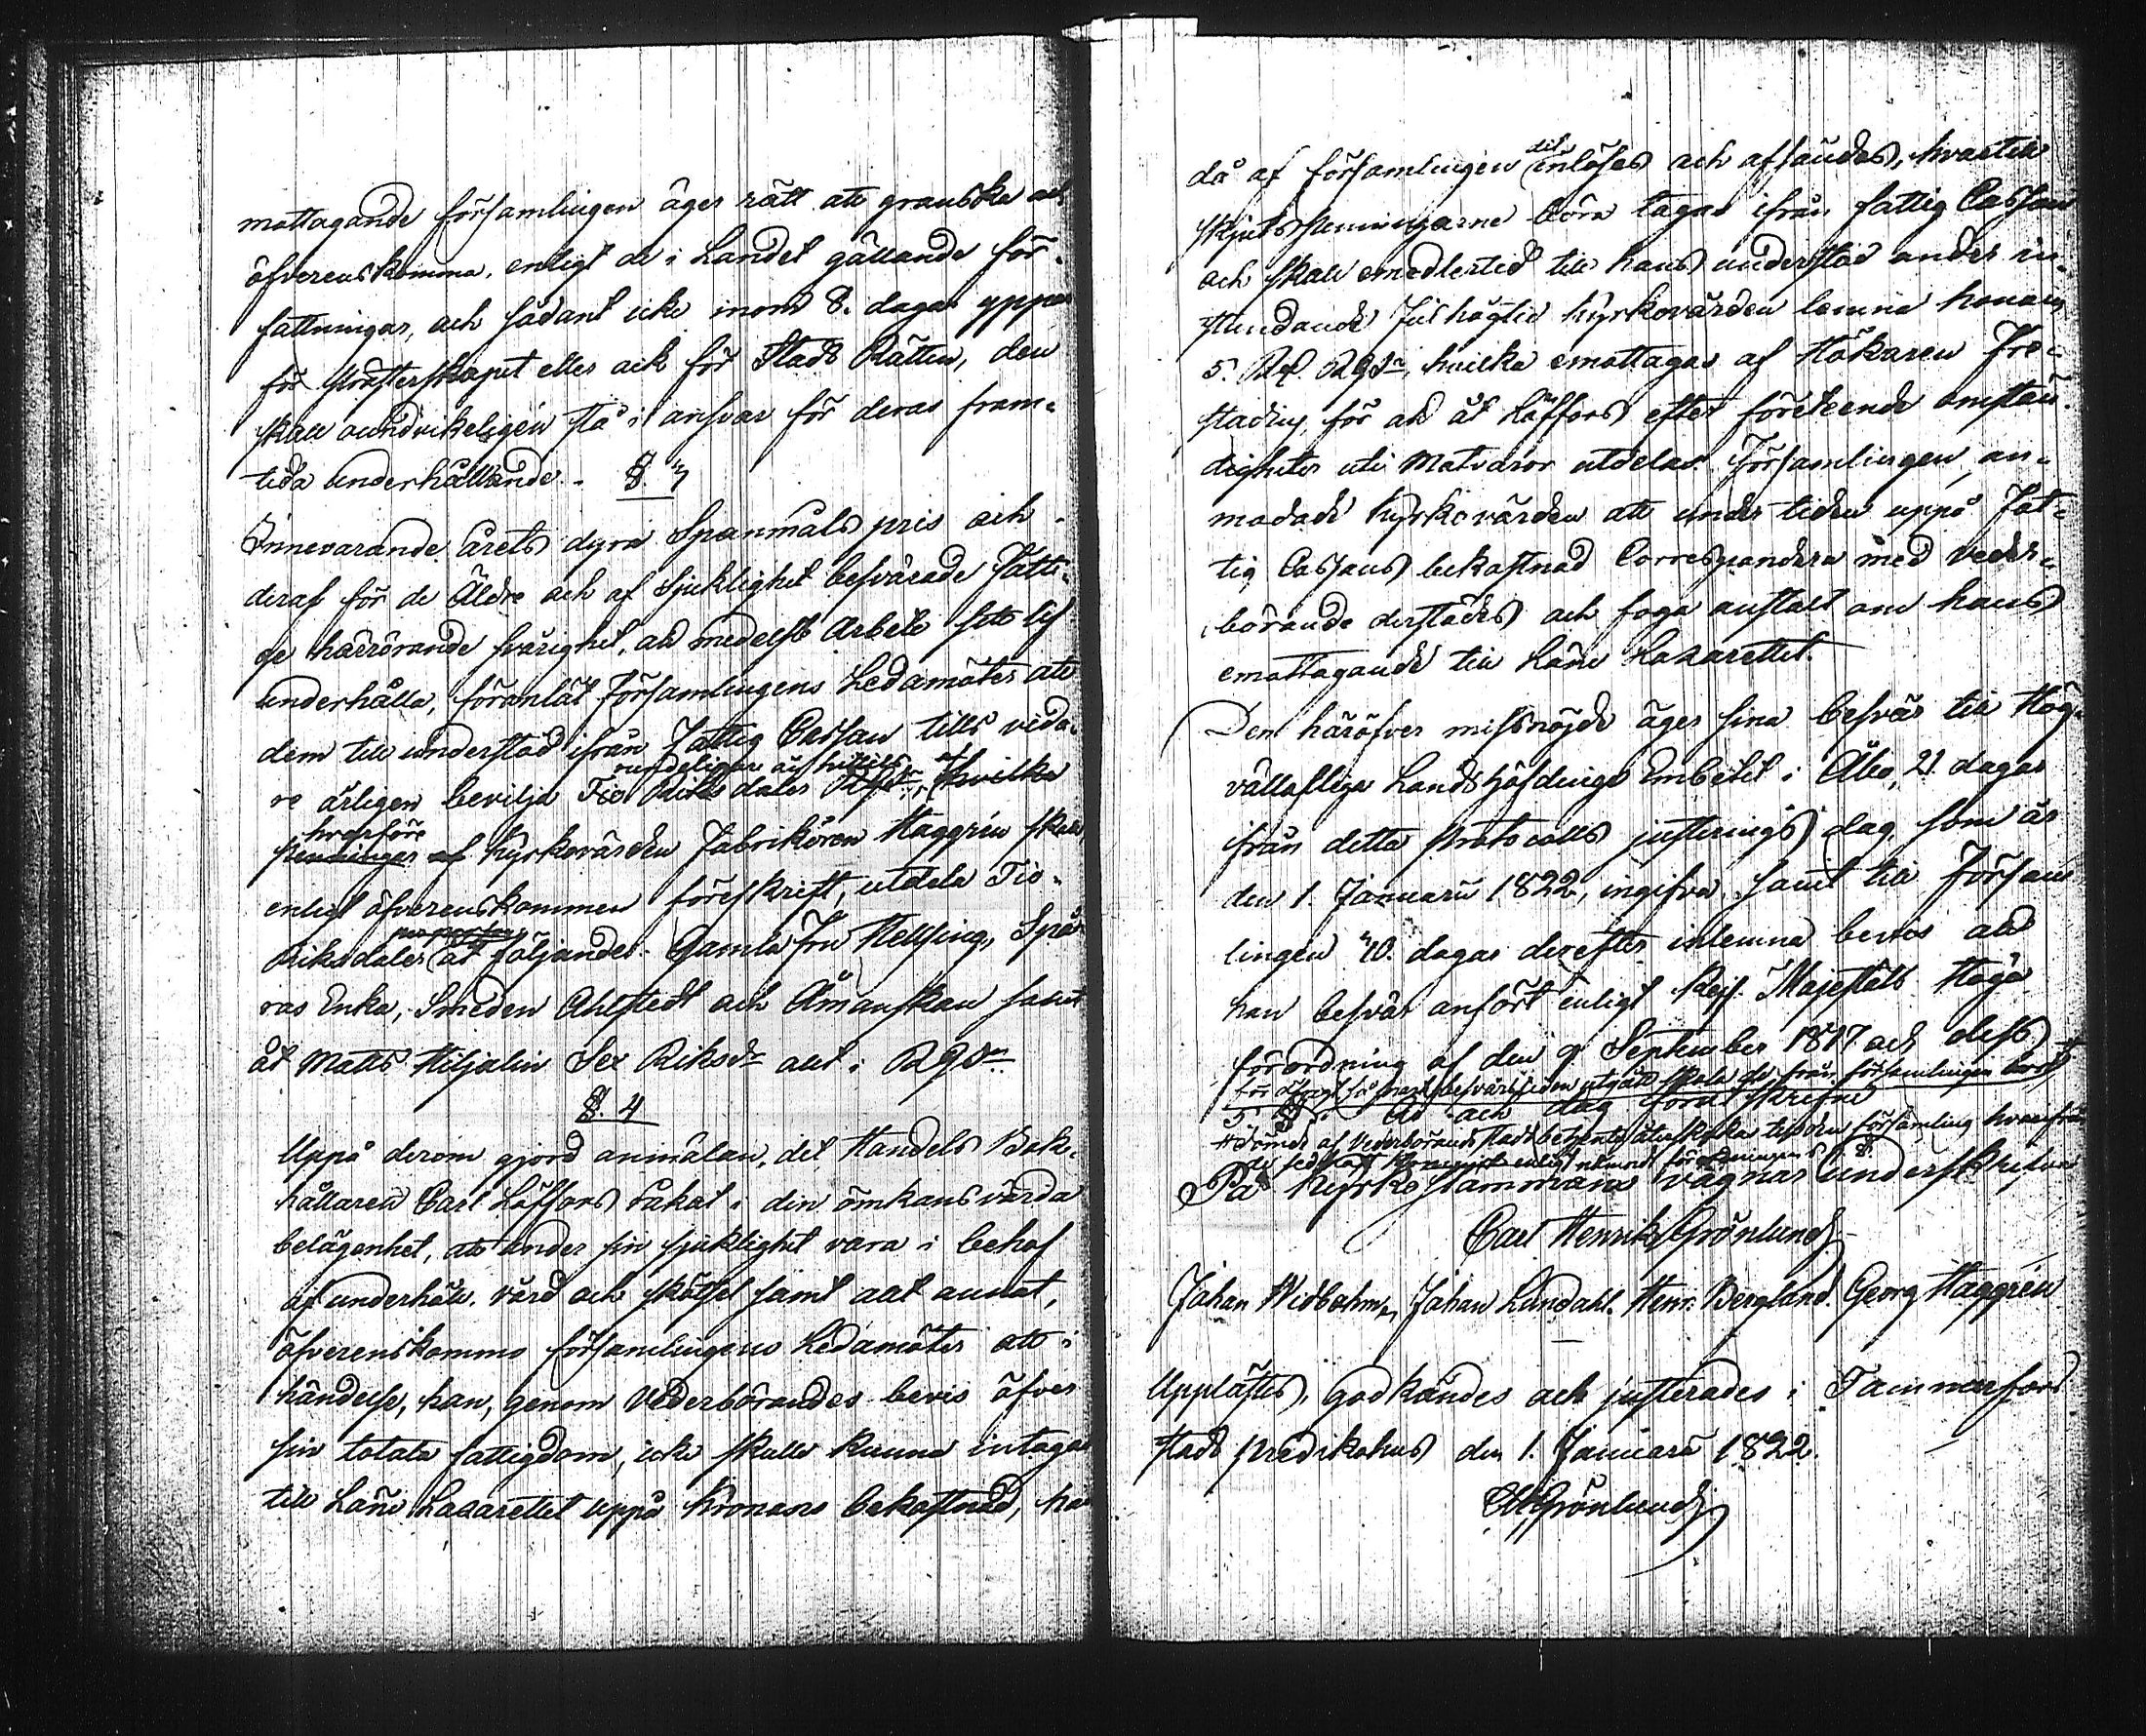 mottagande församlingen äger rätt att granska och
öfverenskomma, enligt de i Landet gällande för-
fattningar, och sådant icke inom 8. dagar yppar
för Prästerskapet eller ock för Stads Rätten, den
skall oundvikeligen stå i ansvar för deras fram-
tida underhållande. §. 3
Innevarande årets dyra Spanmåls pris och
deraf för de Äldre och af sjuklighet besvärade Fatti-
ge härrörande svårighet, att medelst Arbete sitt lif
underhålla, föranlät Församlingens Ledamöter att
dem till understöd ifrån Fattig Cassan tills vida-
re årligen bevilja Tio Riksdaler hvilka
hvarföre
penningar af Kyrkovärden Fabrikören Haggrén skall
enligt öfverenskommen föreskrift, utdela Tio
Riksdaler åt följande: Gamla Fru Hellsing, Spå-
ras Enka, Smeden Ahlstedt och Åmanskan samt
åt Matts Hiljalin Sex Riksdr allt i
§. 4
Uppå derom gjord anmälan, det Handels Bok-
hållaren Carl Löffors råkat i den ömkansvärda
belägenhet, att under sin sjuklighet vara i behof
af underhåll, vård och skötsel samt allt annat,
öfverenskommo församlingens Ledamöter att i
händelse, han, genom Vederbörandes bevis öfver
sin totala fattigdom, icke skulle kunna intagas
till Läne Lazarettet uppå Kronans bekostnad, han
då af församlingen dit inlöses och afsändes, hvartill
skjutspenningarne böra tagas ifrån fattig Cassan
och skall emedlertid till hans understöd under in-
stundande Jul högtid Kyrkovärden lemna honom
5. Rd. hvilka emottagas af Hökaren Fre-
stadius, för att åt Löffors efter företeende omstän-
digheter uti Matvaror utdelas. Församlingen an-
modade Kyrkovärden att under tiden uppå Fat-
tig Cassans bekostnad Correspondera med veder-
börande derstädes och foga anstalt om hans
emottagande till Läne Lazarettet.
Den häröfver missnöjde äger sina besvär till Hög-
vällofliga Landshöfdinge Embetet i Åbo, 21 dagar
ifrån detta Protocolls justerings dag, som är
den 1. Januarii 1822, ingifva samt till Försam-
lingen 10. dagar derefter inlemna bevis att
han besvär anfört enligt Kejs. Majestäts Höga
förordning af den 9 September 1817 och dess
5 §. År och dag förut skrifne
af Vederbörande Stads betjente återskicka till den församling hvarifrån
På Kyrko stämmans vägnar underskrifva
Carl Henrik Grönlund
Johan Widbohm, Johan Lundahl. Henr. Berglund. Georg Haggrén
Upplästes, godkändes och justerades i Tammerfors
Stads predikohus den 1. Januarii 1822.
CH Grönlund